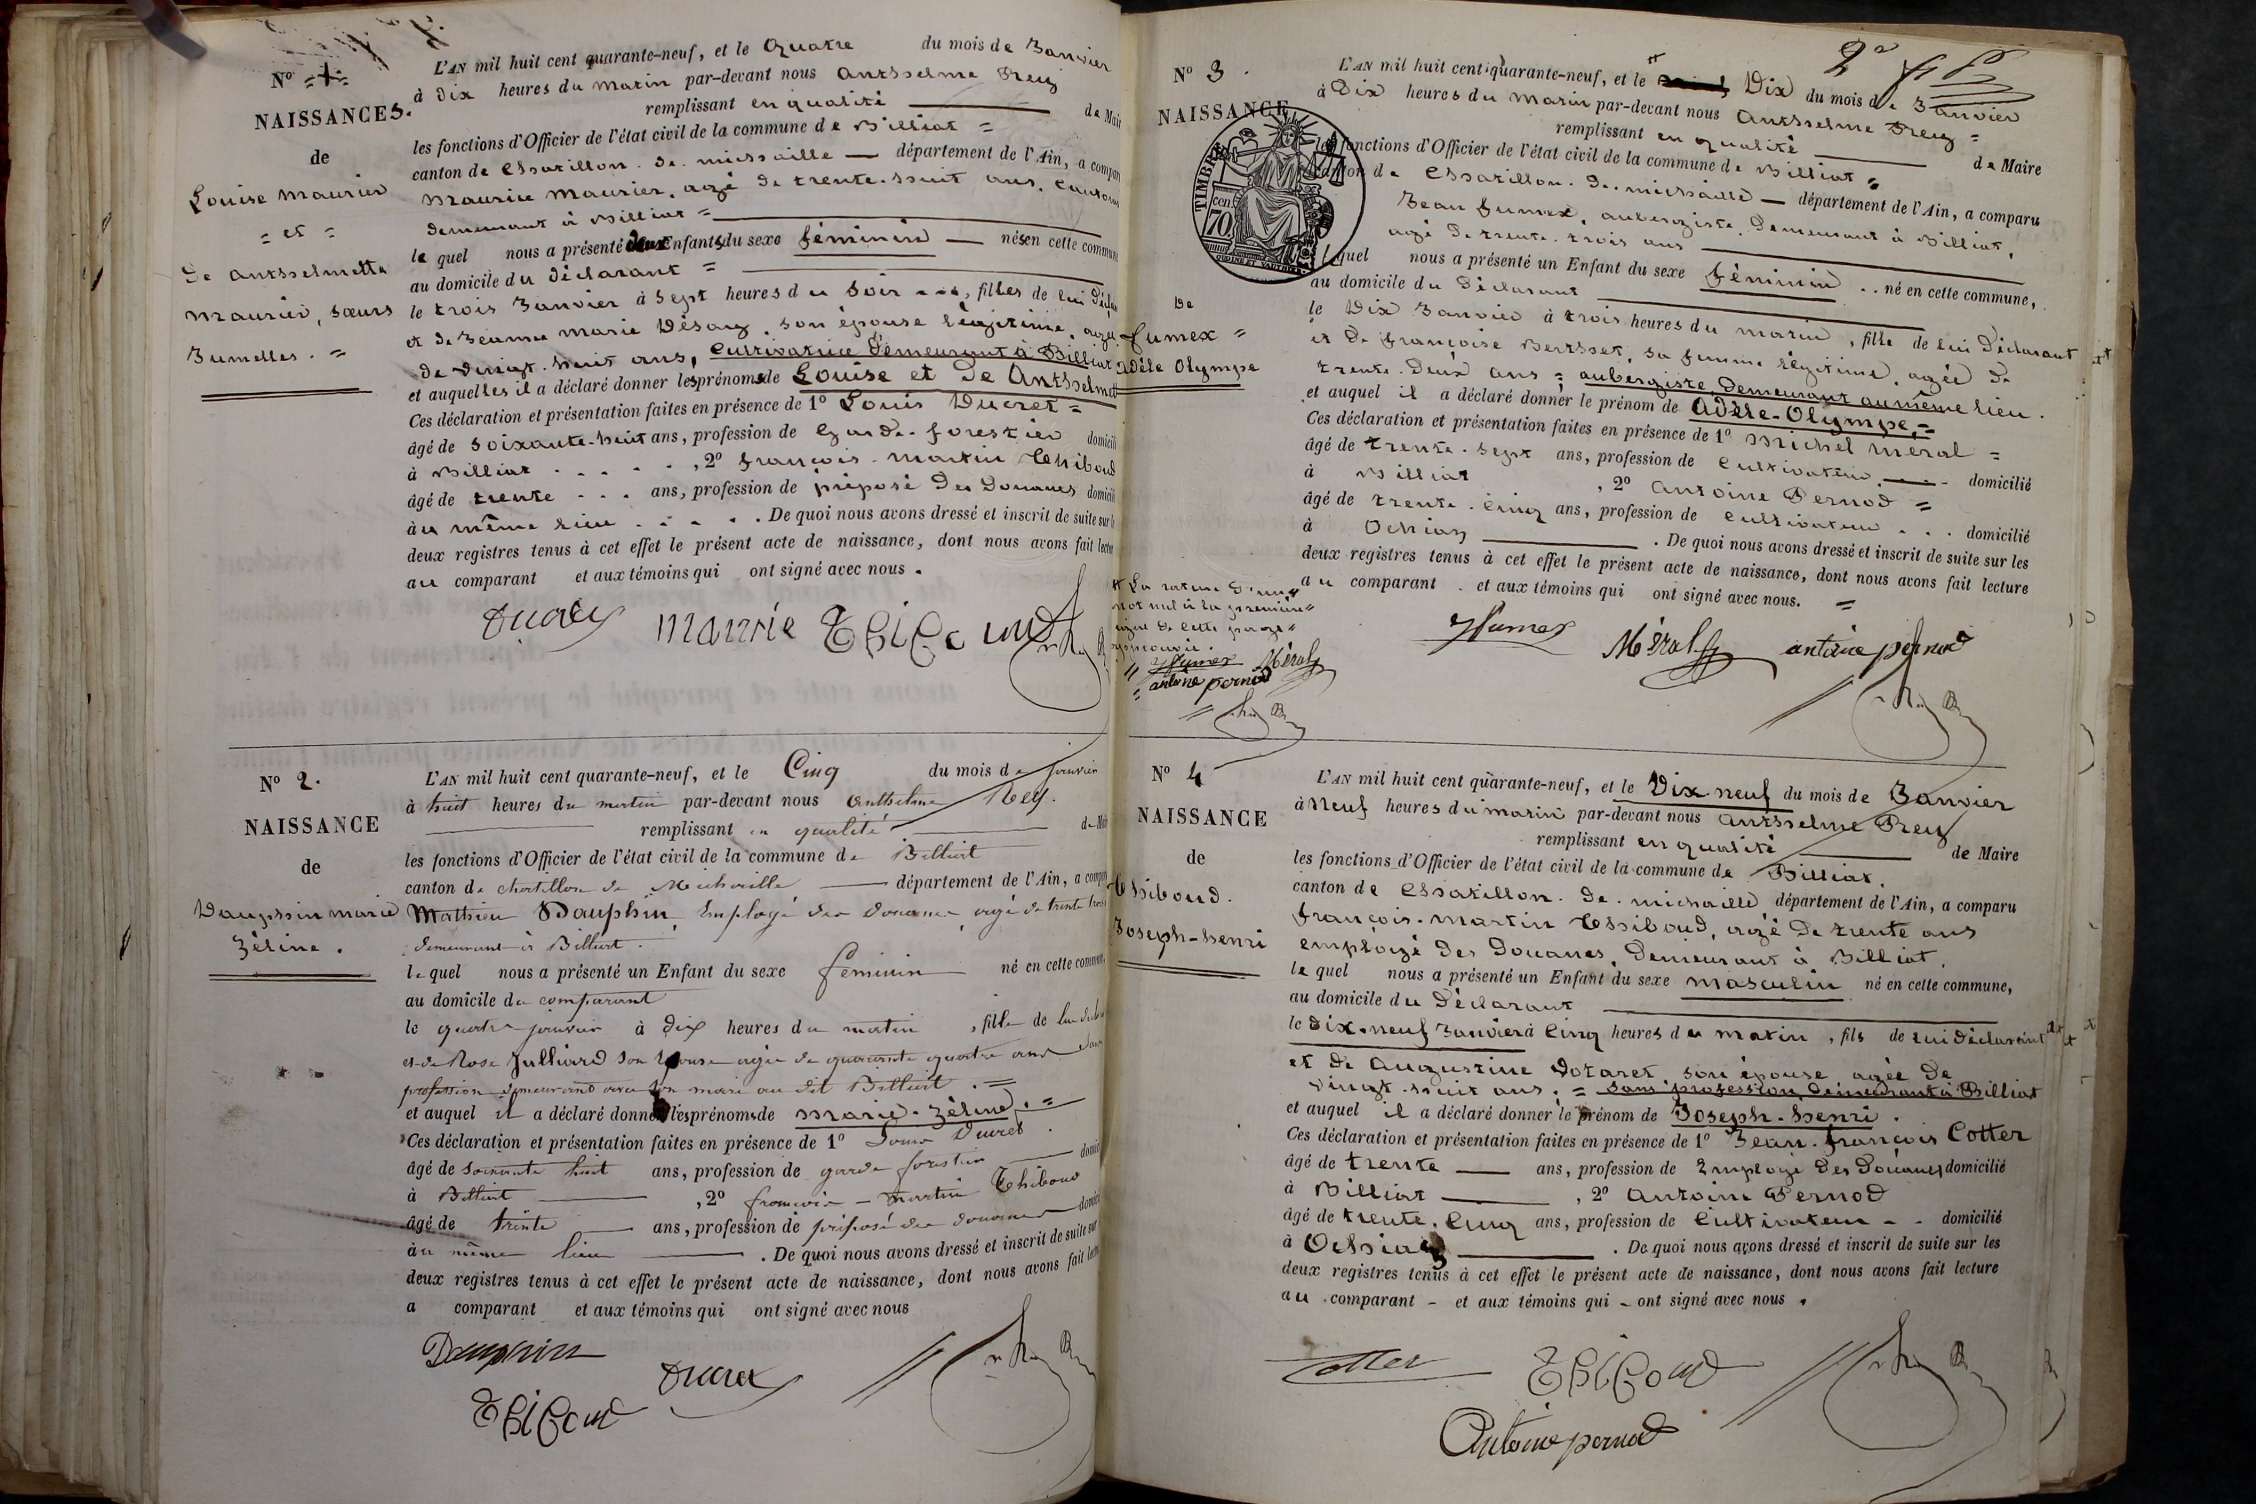 N° 1.
NAISSANCES.
de
Louise Maurier
= et =
De Anthelmette
Maurier, sœurs
Jumelles. =
L'AN mil huit cent quarante-neuf, et le Quatre du mois de Janvier
à Dix heures du matin par-devant nous Anthelme Rey
remplissant en qualité de Mair
les fonctions d'Officier de l'état civil de la commune de Billiat =
canton de Chatillon. de. michaille — département de l'Ain, a compar
Maurice Maurier, agé de trente-huit ans,
demeurant à Billiat =
le quel nous a présenté deux Enfants du sexe féminin — nés en cette commune
au domicile du déclarant =
le trois Janvier à Sept heures du soir . . . , filles de lui décla
et de Jeanne Marie Désay, son épouse légitime, agée
de vingt-huit ans, cultivatrice demeurant à Billiat
et auquelles il a déclaré donner les prénoms de Louise et De Anthelmet
Ces déclaration et présentation faites en présence de 1° Louis Ducret =
âgé de soixante-huit ans, profession de Garde-forestier domicili
à Billiat . . . . . , 2° françois-martin Thiboud
âgé de trente . . . ans, profession de préposé Des Douanes domicili
à u même lieu . . . . . De quoi nous avons dressé et inscrit de suite sur le
deux registres tenus à cet effet le présent acte de naissance, dont nous avons fait lectur
au comparant et aux témoins qui ont signé avec nous .
Ducret Maurié Thiboud
N° 2.
NAISSANCE
de
Dauphin marie
Zéline.
L'AN mil huit cent quarante-neuf, et le Cinq du mois de janvier
à huit heures du matin par-devant nous Anthelme Rey.
remplissant en qualité de Mair
les fonctions d'Officier de l'état civil de la commune de Billiat
canton de Chatillon de Michaille — département de l'Ain, a compar
Mathieu Dauphin Employé des douanes agé de trente trois
demeurant à Billiat.
lequel nous a présenté un Enfant du sexe féminin né en cette commune,
au domicile du comparant
le quatre janvier à Dix heures du matin , fille de lui décla
et de Rose Julliard son Epouse agée de quarante quatre ans sans
profession demeurant avec son mari au dit Billiat . =
et auquel il a déclaré donner les prénoms de Marie-Zéline. =
Ces déclaration et présentation faites en présence de 1° Louis Ducret .
âgé de soixante huit ans, profession de garde forestier domici
à Billiat , 2° françois - martin Thiboud
âgé de trente ans, profession de préposé des douanes domici
à u même lieu . De quoi nous avons dressé et inscrit de suite sur
deux registres tenus à cet effet le présent acte de naissance, dont nous avons fait lectu
a comparant et aux témoins qui ont signé avec nous
Dauphin
Ducret
Thiboud
2e
N° 3.
NAISSANCE
TIMBRE
70. cen
De
fumex =
Adèle Olympe
L'AN mil huit cent quarante-neuf, et le Dix du mois de Janvier
à Dix heures du matin par-devant nous Anthelme Rey =
remplissant en qualité de Maire
les fonctions d'Officier de l'état civil de la commune de Billiat =
canton de Chatillon. De. michaille — département de l'Ain, a comparu
Jean fumex, aubergiste, Demeurant à Billiat
agé de trente-trois ans
lequel nous a présenté un Enfant du sexe féminin . . né en cette commune,
au domicile du Déclarant
le Dix Janvier à trois heures du matin , fille de lui Déclarant
et De françoise Berthet, sa femme légitime, agée de
trente-Deux ans = aubergiste Demeurant au même lieu.
et auquel il a déclaré donner le prénom de Adèle-Olympe, =
Ces déclaration et présentation faites en présence de 1° Michel Méral =
âgé de trente-sept ans, profession de cultivateur, domicilié
à Billiat , 2° Antoine Pernod =
âgé de trente-Cinq ans, profession de cultivateur . . . domicilié
à Ochiaz . De quoi nous avons dressé et inscrit de suite sur les
deux registres tenus à cet effet le présent acte de naissance, dont nous avons fait lecture
au comparant . et aux témoins qui ont signé avec nous. =
La rature d'un
mot nul à la première
ligne de cette page
approuvée.
Jfumex Méral
antoine pernod
Jfumex Méral antoine pernod
N° 4
NAISSANCE
de
Thiboud.
Joseph-henri
L'AN mil huit cent quarante-neuf, et le Dix-neuf du mois de Janvier
à Neuf heures du matin par-devant nous Anthelme Rey
remplissant en qualité de Maire
les fonctions d'Officier de l'état civil de la commune de Billiat.
canton de Chatillon. De. michaille département de l'Ain, a comparu
françois-martin Thiboud, agé De trente ans
employé des Douanes, Demeurant à Billiat.
le quel nous a présenté un Enfant du sexe masculin né en cette commune,
au domicile du Déclarant
le Dix-neuf Janvier à Cinq heures du matin , fils de lui Déclarant
et De Augustine Votaret, son épouse agée De
vingt-huit ans. = sans profession, Demeurant à Billiat
et auquel il a déclaré donner le prénom de Joseph-henri .
Ces déclaration et présentation faites en présence de 1° Jean-françois Cotter
âgé de trente ans, profession de Employé Des Douanes domicilié
à Billiat , 2° Antoine Pernod
âgé de trente-Cinq ans, profession de Cultivateur . . domicilié
à Ochiaz . De quoi nous avons dressé et inscrit de suite sur les
deux registres tenus à cet effet le présent acte de naissance, dont nous avons fait lecture
au comparant - et aux témoins qui - ont signé avec nous .
Cotter Thiboud
Antoine pernod